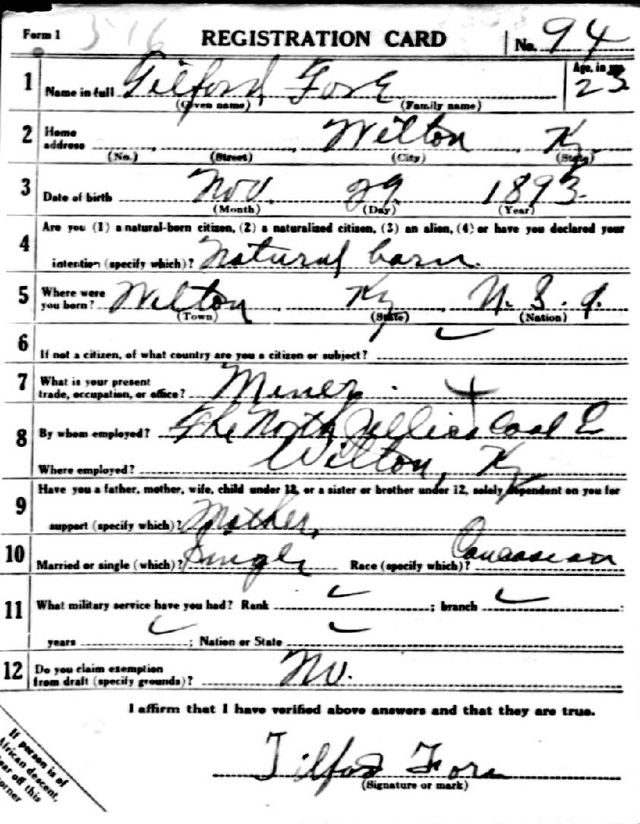 Form 1 REGISTRATION CARD No. 94
1 Name in full Gilford Fore Age, in yrs. 23
(Given name) (Family name)
2 Home address Wilton Ky.
(No.) (Street) (City) (State)
3 Date of birth Nov. 29 1893
(Month) (Day) (Year)
4 Are you (1) a natural-born citizen, (2) a naturalized citizen, (3) an alien, (4) or have you declared your
intention (specify which)? Natural born.
5 Where were you born? Wilton Ky U. S. A.
(Town) (State) (Nation)
6 If not a citizen, of what country are you a citizen or subject?
7 What is your present trade, occupation, or office? Miner.
8 By whom employed? The North Jellico Coal
Where employed? Wilton, Ky
9 Have you a father, mother, wife, child under 12, or a sister or brother under 12, solely dependent on you for
support (specify which)? Mother.
10 Married or single (which)? Single Race (specify which)? Caucasian
11 What military service have you had? Rank ; branch ;
years ; Nation or State
12 Do you claim exemption from draft (specify grounds)? No.
I affirm that I have verified above answers and that they are true.
Tilford Fore
(Signature or mark)
If person is of
African descent,
tear off this
corner